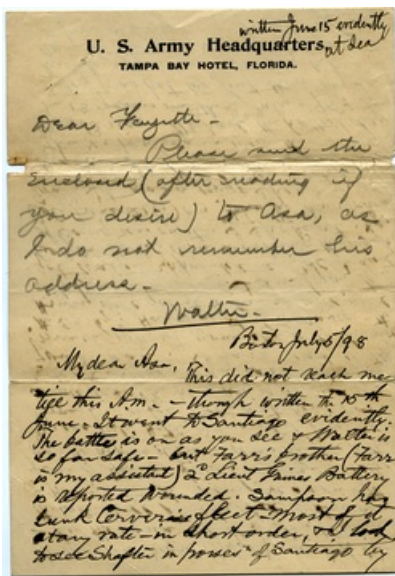 written June 15 evidently
at sea
U. S. Army Headquarters
TAMPA BAY HOTEL, FLORIDA.
Dear Fayette -
Please send the
enclosed (after reading if
you desire) to Asa, as
I do not remember his
address -
Walter -
Boston July 5/98
My dear Asa, This did not reach me
till this Am. - though written the 15th
June. It went to Santiago evidently.
The battle is on as you see & Walter is
so far safe - but Farr's brother (Farr
is my assistant) 2d Lieut Battery
is reported wounded. Sampson has
sunk Cervera's fleet - most of it
at any rate - in short order, & I look
to see Shafter in possess'n of Santiago by